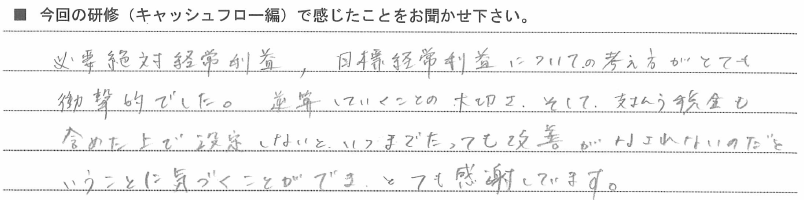 ■ 今回の研修（キャッシュフロー編）で感じたことをお聞かせ下さい。
必要絶対経常利益，目標経常利益についての考え方がとても
衝撃的でした。逆算していくことの大切さ、そして、支払う税金も
含めた上で設定しないと、いつまでたっても改善がなされないのだと
いうことに気づくことができ、とても感謝しています。